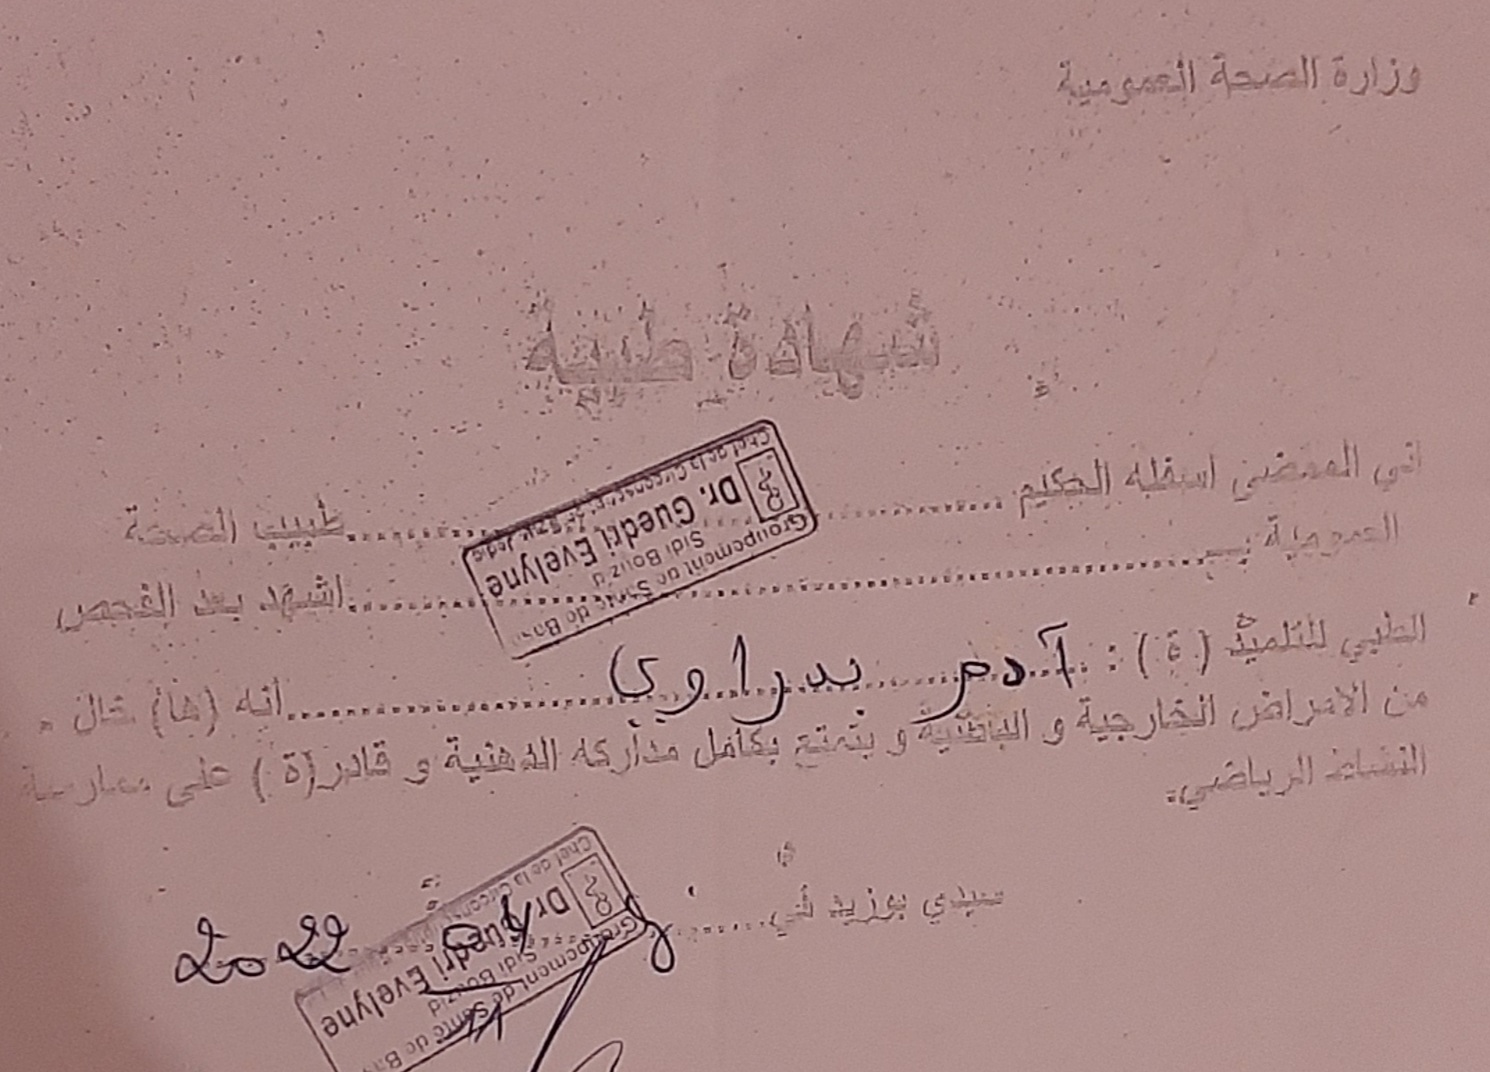 وزارة الصحة العمومية
شهادة طبية
اني الممضي اسفله الحكيم ........ طبيب الصحة
Groupement de Santé de Base
Sidi Bouzid
Dr. Guedri Evelyne
Chef de la Circonscription
العمومية بـ ........ اشهد بعد الفحص
الطبي للتلميذ ( ة ) : آدم بدراوي ........ أنه (ها) خال
من الامراض الخارجية و الباطنية و يتمتع بكامل مداركه الذهنية و قادر(ة ) على ممارسة
النشاط الرياضي.
سيدي بوزيد في ........ 2022
Groupement de Santé de Base
Sidi Bouzid
Dr. Guedri Evelyne
Chef de la Circonscription